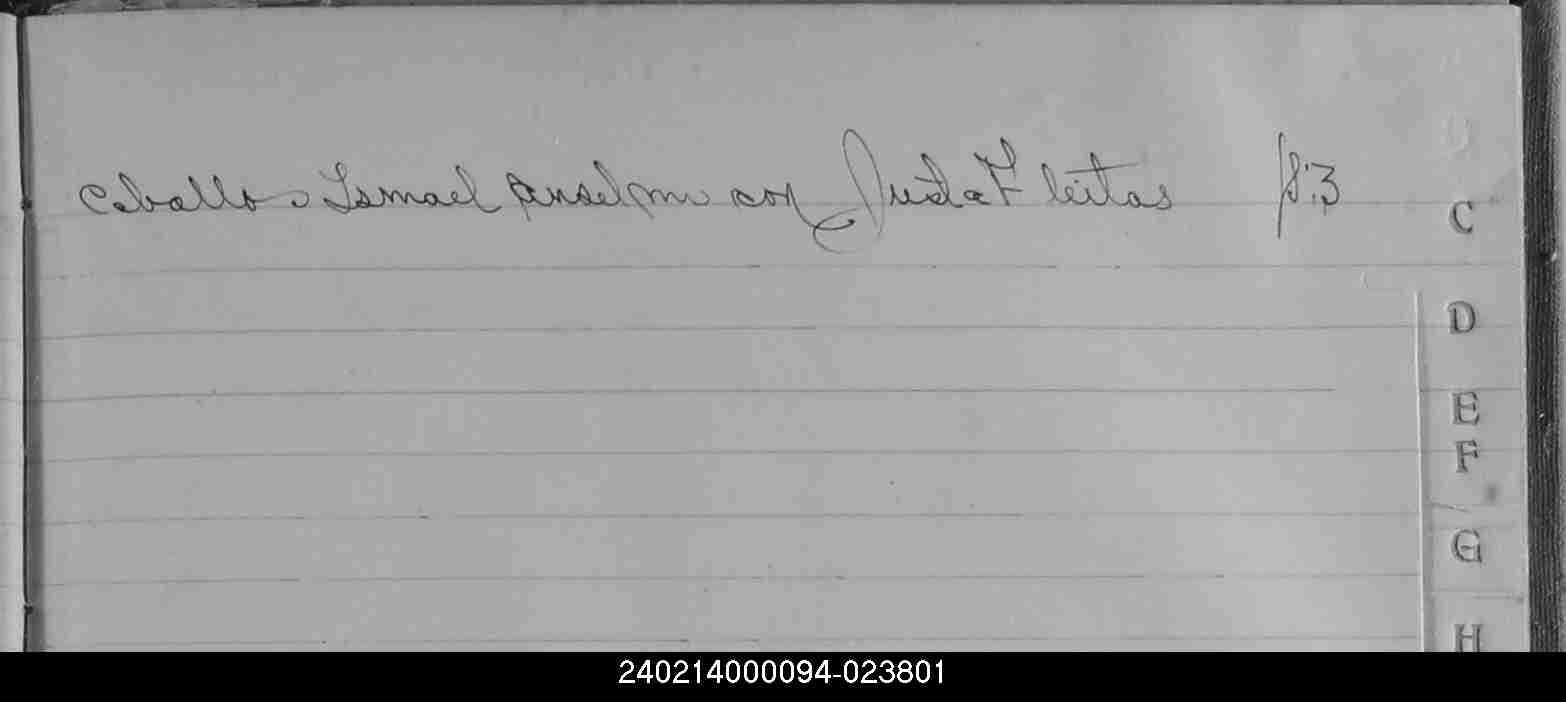 Ceballos Ismael Anselmo con Justa F leitas fs:3
C
D
E
F
G
H
240214000094-023801